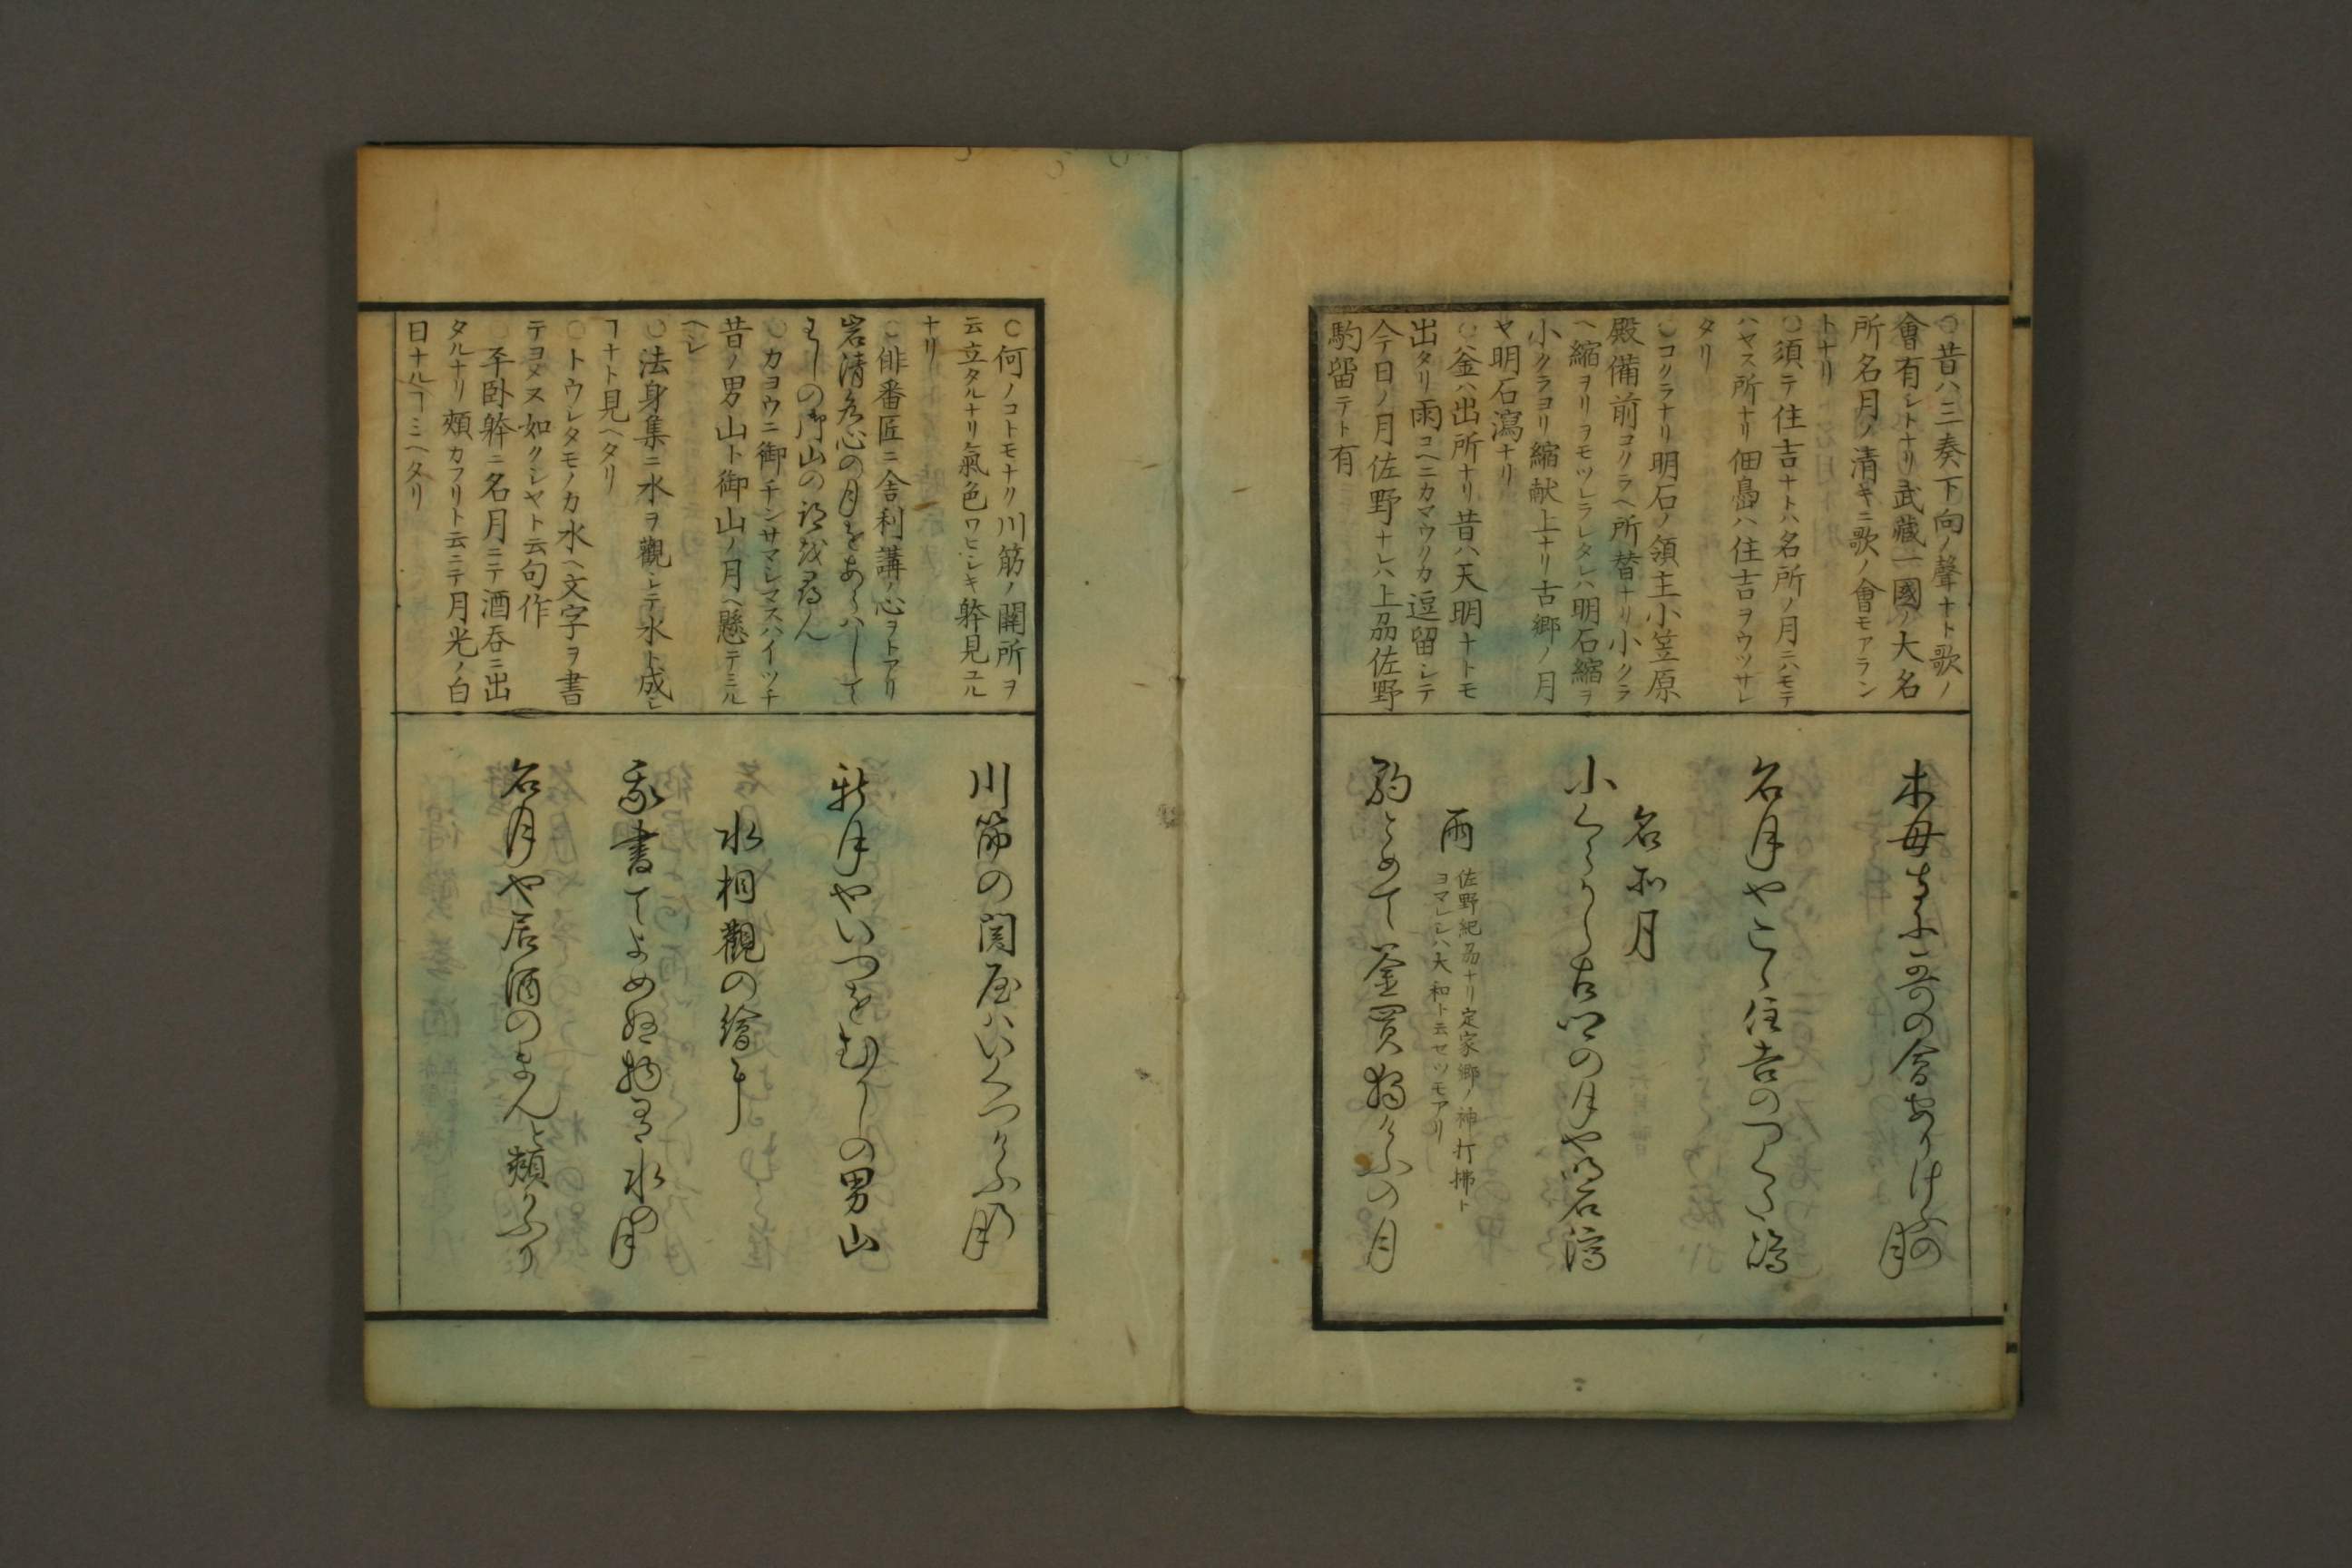 〇昔ハ三奏下向ノ聲ナト歌ノ
會有シトナリ武藏一國ノ大名
所名月ノ清キニ歌ノ會モアラン
トナリ
〇須テ住吉ナトハ名所ノ月ニハモテ
ハヤス所ナリ佃嶌ハ住吉ヲウツサレ
タリ
〇コクラナリ明石ノ領主小笠原
殿備前コクラヘ所替ナリ小クラ
ヘ縮ヲリヲモツレラレタレハ明石縮ヲ
小クラヨリ縮献上ナリ古郷ノ月
ヤ明石瀉ナリ
〇釜ハ出所ナリ昔ハ天明ナトモ
出タリ雨コヘニカマウクカ逗留シテ
今日ノ月佐野ナレハ上刕佐野
駒留テト有
木母寺に哥の會ありけふの月
名月やこゝ住吉のつくた嶋
名所月
小くらから古郷の月や明石潟
雨
佐野紀刕ナリ定家郷ノ神打拂ト
ヨマレシハ大和ト云セツモアリ
駒とめて釜買独けふの月
〇何ノコトモナク川筋ノ關所ヲ
云立タルナリ氣色ワヒシキ躰見ユル
ナリ
〇俳番匠ニ舎利講ノ心ヲトアリ
岩清水心の月をあらハして
むかしの御山の跡を尋ん
〇カヨウニ御チンサマシマスハイツチ
昔ノ男山ト御山ノ月ヘ懸テミル
ヘシ
〇法身集ニ水ヲ觀シテ水ト成シ
ヿナト見ヘタリ
〇トウシタモノカ水ヘ文字ヲ書
テヨメヌ如クシヤト云句作
〇平卧躰ニ名月ニテ酒呑ニ出
タルナリ頰カフリト云ニテ月光ノ白
日ナルヿミヘタリ
川筋の関屋ハいくつけふの月
新月やいつをむかしの男山
水相觀の繪に
我書てよめぬ物有水の月
名月や居酒のまんと頰かふり